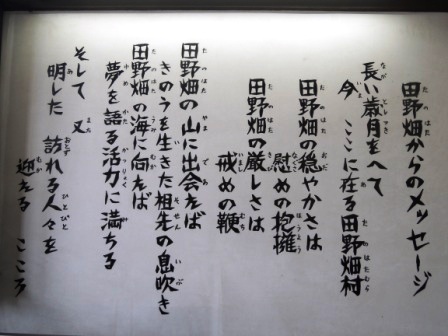 田野畑からのメッセージ
長い歳月をへて
今 ここに在る田野畑村
田野畑の穏やかさは
慰めの抱擁
田野畑の厳しさは
戒めの鞭
田野畑の 山に出会えば
きのうを生きた祖先の息吹き
田野畑の海に向えば
夢を語る活力に満ちる
そして 又
明した 訪れる人々を
迎える こころ